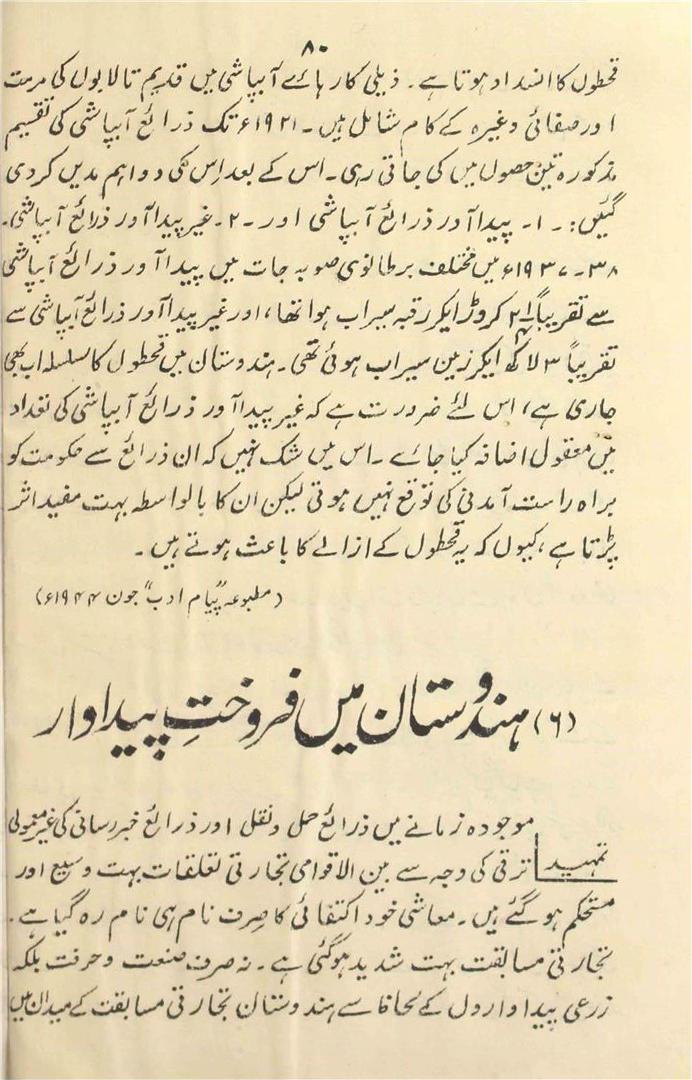 ۸۰
قحطوں کا انسداد ہوتا ہے۔ ذیلی کارہائے آبپاشی میں قدیم تالابوں کی مرمت
اور صفائی وغیرہ کے کام شامل ہیں۔ ۱۹۲۱ء تک ذرائع آبپاشی کی تقسیم
مذکورہ تین حصوں میں کی جاتی رہی۔ اس کے بعد اِس کی دو اہم مدیں کردی
گئیں:۔ ۱۔ پیداآور ذرائع آبپاشی اور ۔۲۔ غیر پیداآور ذرائع آبپاشی۔
۳۸۔۱۹۳۷ء میں مختلف برطانوی صوبہ جات میں پیداآور ذرائع آبپاشی
سے تقریباً ۲ ۱/۴ کروڑ ایکر رقبہ سیراب ہوا تھا، اور غیر پیداآور ذرائع آبپاشی سے
تقریباً ۳ لاکھ ایکر زمین سیراب ہوئی تھی۔ ہندوستان میں قحطوں کا سلسلہ اب بھی
جاری ہے، اس لئے ضرورت ہے کہ غیر پیداآور ذرائع آبپاشی کی تعداد
میں معقول اضافہ کیا جائے۔ اس میں شک نہیں کہ ان ذرائع سے حکومت کو
براہ راست آمدنی کی توقع نہیں ہوتی لیکن ان کا بالواسطہ بہت مفید اثر
پڑتا ہے، کیوں کہ یہ قحطوں کے ازالے کا باعث ہوتے ہیں۔
(مطبوعہ "پیام ادب" جون ۱۹۴۴ء)
(۶) ہندوستان میں فروختِ پیداوار
موجودہ زمانے میں ذرائع حمل و نقل اور ذرائع خبررسانی کی غیر معمولی
تمہید ترقی کی وجہ سے بین الاقوامی تجارتی تعلقات بہت وسیع اور
مستحکم ہوگئے ہیں۔ معاشی خود اکتفائی کا صِرف نام ہی نام رہ گیا ہے۔
تجارتی مسابقت بہت شدید ہوگئی ہے۔ نہ صرف صنعت و حرفت بلکہ
زرعی پیداواروں کے لحاظ سے ہندوستان تجارتی مسابقت کے میدان میں